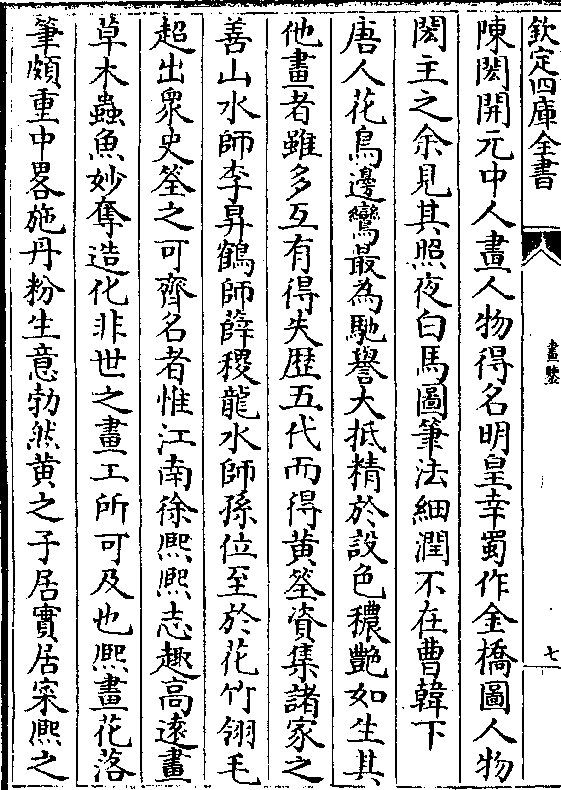 欽定四庫全書
畫鑒
七
陳閎開元中人畫人物得名明皇幸蜀作金橋圖人物
閎主之余見其照夜白馬圖筆法細潤不在曹韓下
唐人花鳥邊鸞最為馳譽大抵精於設色穠艷如生其
他畫者雖多互有得失歴五代而得黄筌資集諸家之
善山水師李昇鶴師薛稷龍水師孫位至於花竹翎毛
超出衆史筌之可齊名者惟江南徐熙熙志趣高遠畫
草木蟲魚妙奪造化非世之畫工所可及也熙畫花落
筆頗重中畧施丹粉生意勃然黄之子居寶居寀熙之